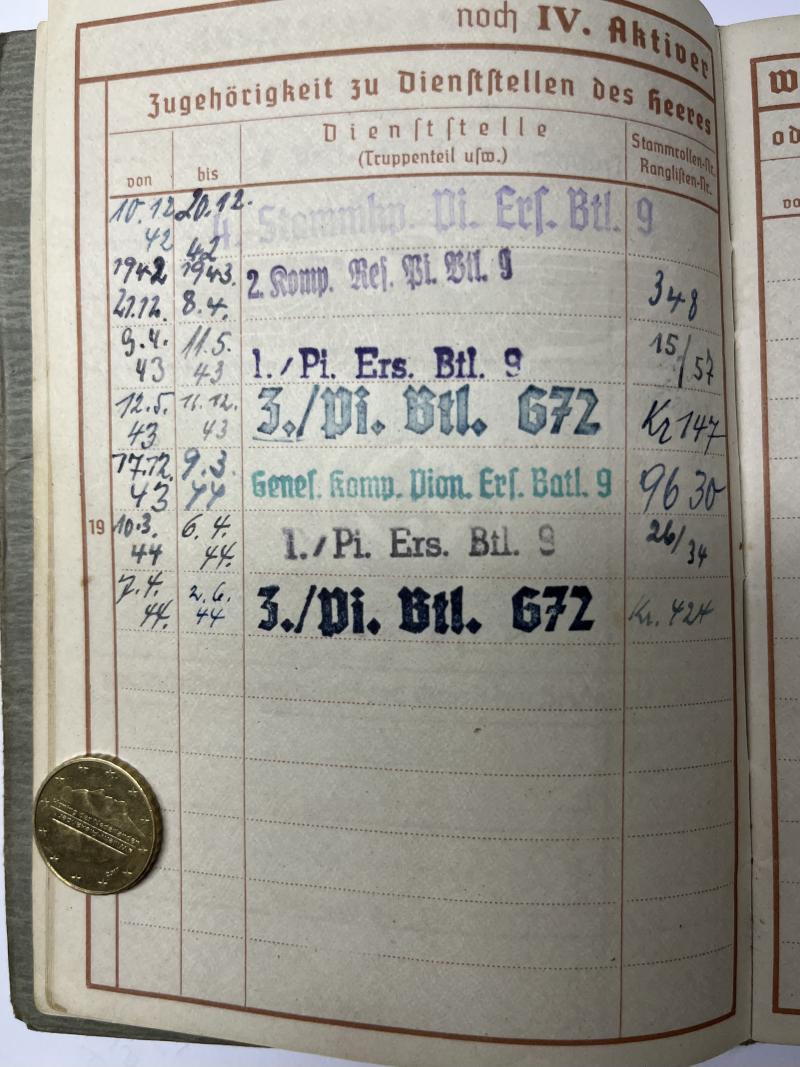 noch IV. Aktiver
Zugehörigkeit zu Dienststellen des Heeres
von
bis
Dienststelle
(Truppenteil usw.)
Stammrollen-Nr.
Ranglisten-Nr.
10.12 42 20.12. 42 4. Stammkp. Pi. Ers. Btl. 9
1942 21.12. 1943. 8.4. 2. Komp. Res. Pi. Btl. 9 348
9.4. 43 11.5. 43 1./Pi. Ers. Btl. 9 15/57
12.5. 43 11.12. 43 3./Pi. Btl. 672 Kr 147
17.12. 43 9.3. 44 Genes. Komp. Pion. Ers. Batl. 9 96 30
19 10.3. 44 6.4. 44. 1./Pi. Ers. Btl. 9 26/34
7.4. 44. 2.6. 44 3./Pi. Btl. 672 Kr. 424
W
od
vo
Koning der Nederlanden